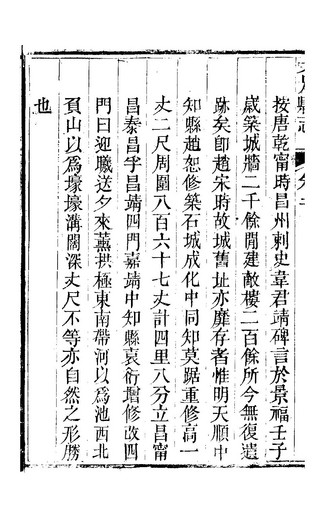 大足縣志 卷二
按唐乾甯時昌州刺史韋君靖碑言於景福壬子
歲築城牆二千餘閒建敵樓二百餘所今無復遺
跡矣卽趙宋時故城舊址亦靡存者惟明天順中
知縣趙恕修築石城成化中同知莫踞重修高一
丈二尺周圍八百六十七丈計四里八分立昌甯
昌泰昌孚昌靖四門嘉靖中知縣袁衍增修改四
門曰迎曦送夕來薰拱極東南帶河以爲池西北
負山以爲壕壕溝闊深丈尺不等亦自然之形勝
也